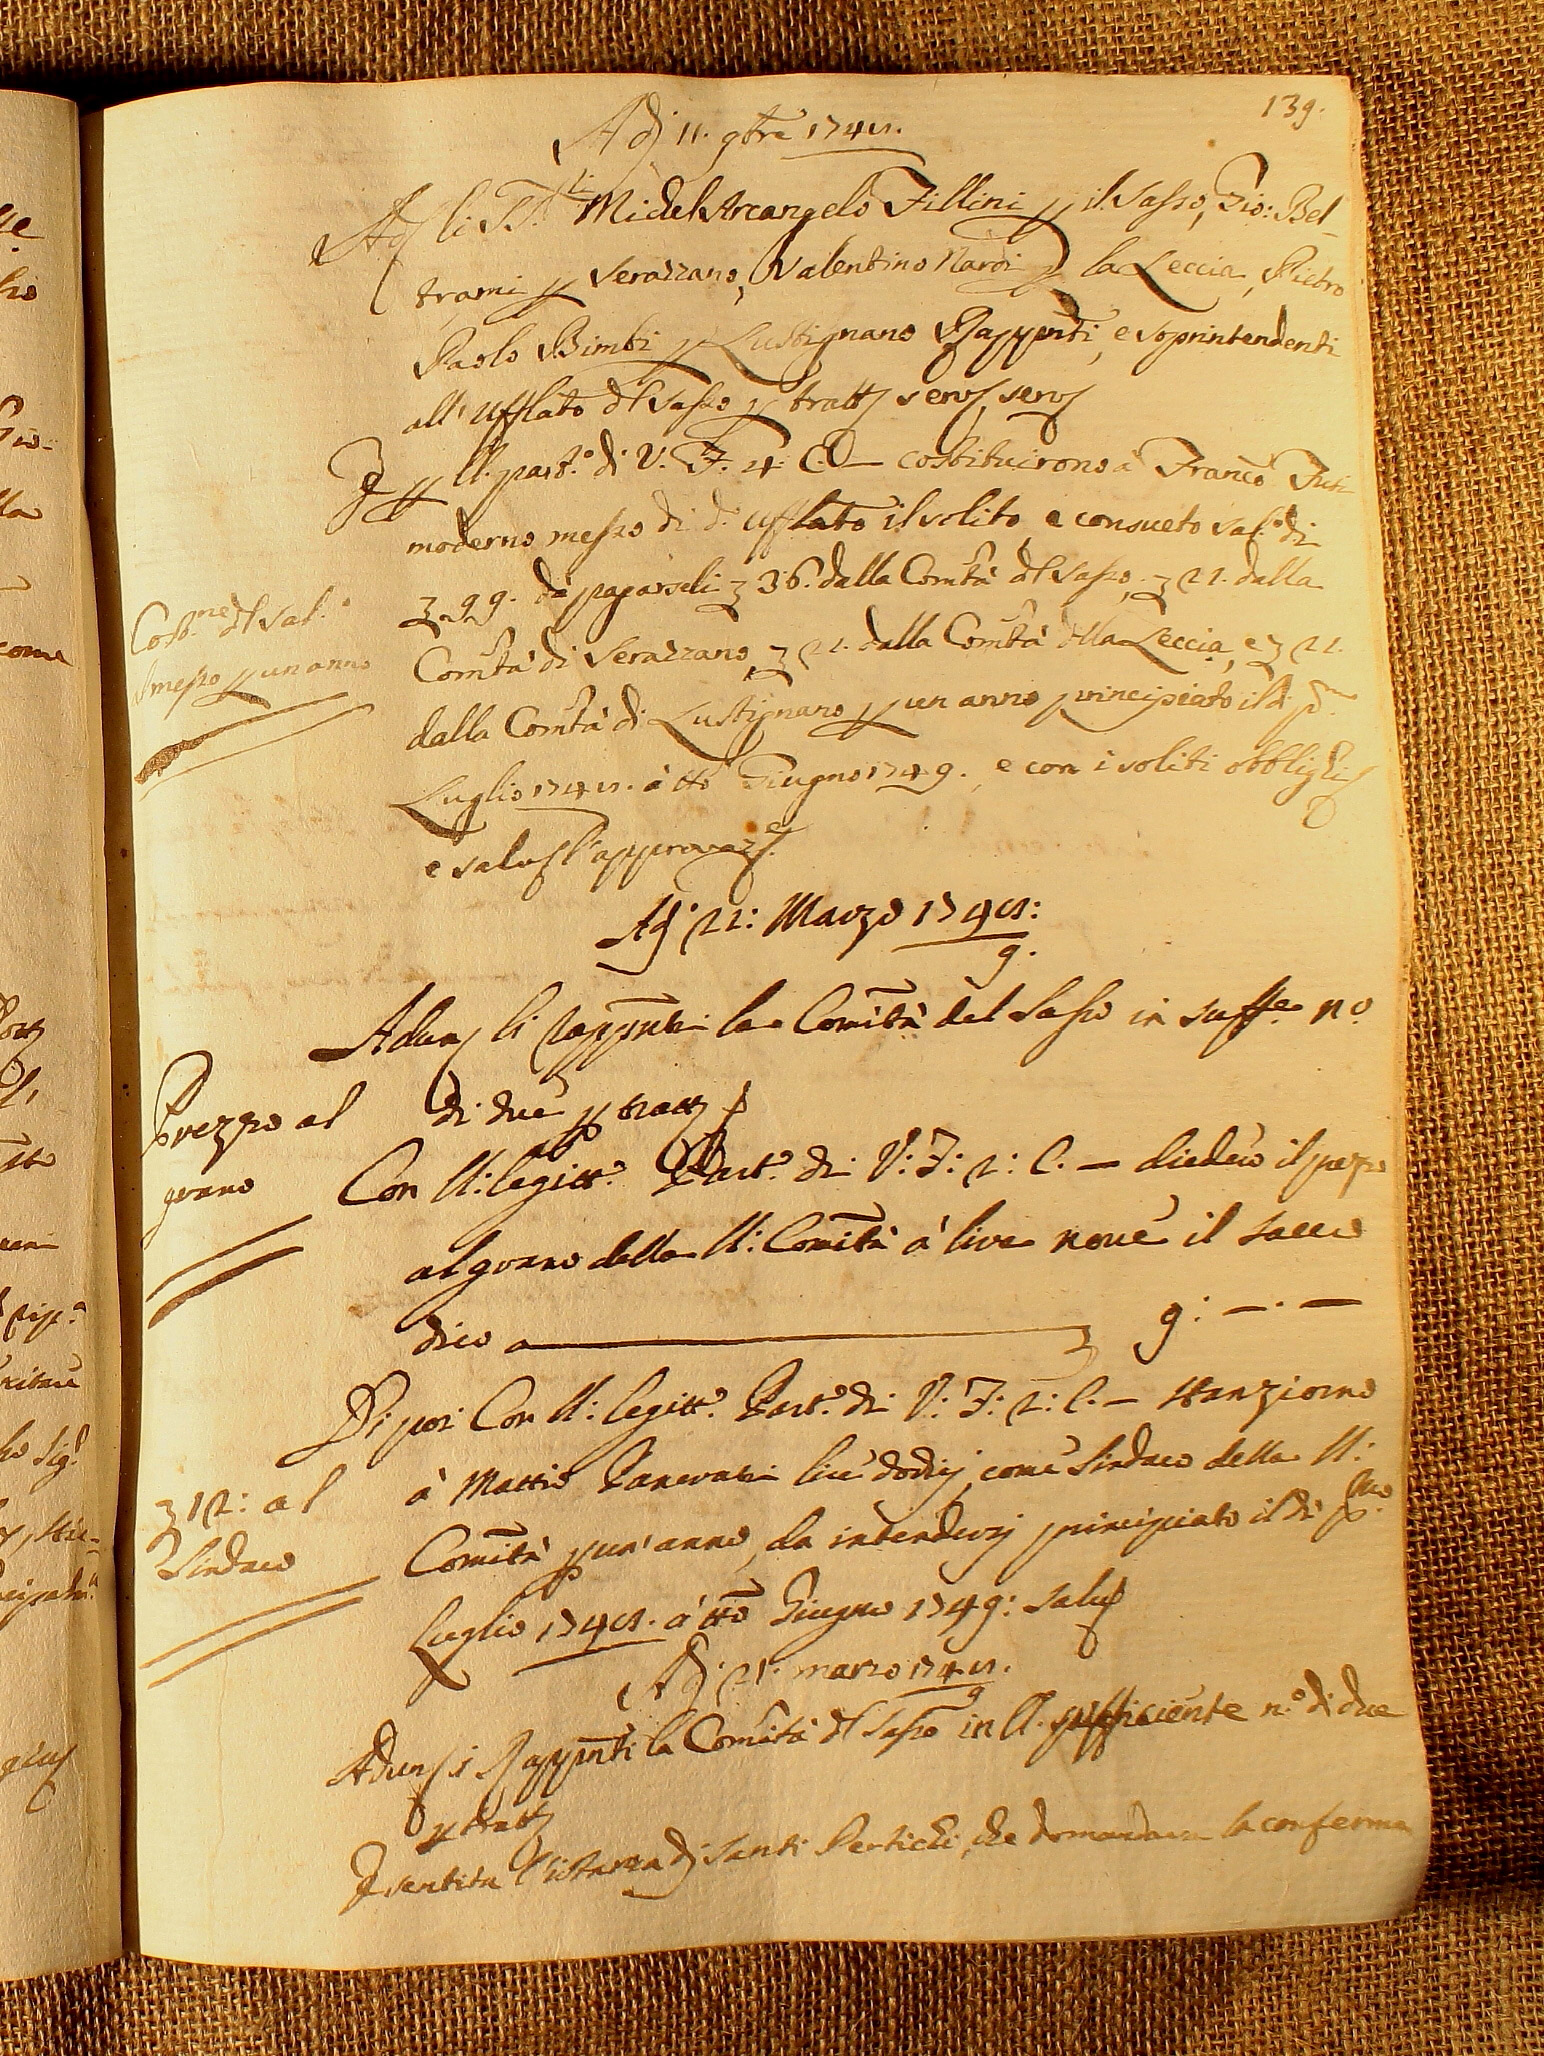 139.
Adì 11. 9bre 1748.
Ad. li SS.ri Michel Arcangelo Fillini p il Sasso, Gio: Bel-
trami p Serazzano, Valentino Nardi p la Leccia, Pietro
Paolo Bimbi p Lustignano Rapprnti, e soprintendenti
all' Ufflato dl Sasso p tratt. serv. serv.
E p ll. part.o di V. F. 4. C. O— costituirono à Franco
moderno messo di d.o Ufflato il solito, e consueto sal.o di
£ 99. dà pagarseli £ 36. dalla Comtà dl Sasso, £ 21. dalla
Costne dl sal.o
Comtà di Serazzano, £ 21. dalla Comtà dlla Leccia, e £ 21.
messo p un anno
dalla Comtà di Lustignano p un anno principiato il dì p.mo
Luglio 1748. à tto Giugno 1749., e con i soliti obblighi
e salv. l'approvaz.e
Adì 21: Marzo 1748:
9.
Adun. li Rapprnti la Comità del Sasso in suffe no
Prezzo al
di due p tratt.
grano
Con ll: legitt.o Part.o di V: F: 2: C. — diedero il prezo
al grano della ll: Comità à lire nove il sacco
dico a — £ 9: —.—
Di poi Con ll: legitt.o Part.o di V: F: 2: C. — stanziorno
£ 12: al
à Mattio Panerati lire dodici come Sindaco della ll:
Sindaco
Comità p un' anno, da intendersi principiato il dì p.mo
Luglio 1748. à tto Giugno 1749: salv.
Adì 21. marzo 1748.
9
Adun. i Rapprnti la Comità dl Sasso in ll. sufficiente n.o di due
p tratt.
E sentita l'istanza di Santi Pertichi, che domandava la conferma